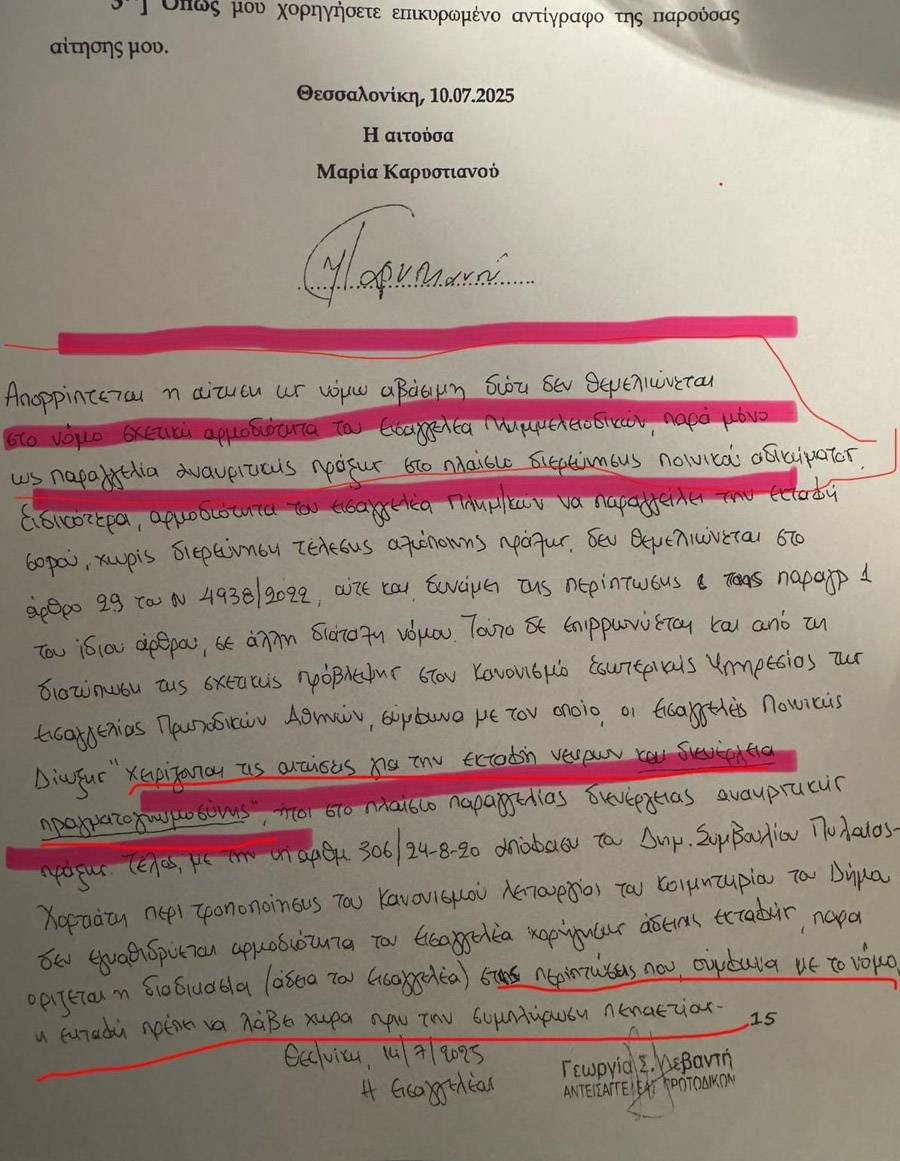 3ο] Όπως μου χορηγήσετε επικυρωμένο αντίγραφο της παρούσας
αίτησης μου.
Θεσσαλονίκη, 10.07.2025
Η αιτούσα
Μαρία Καρυστιανού
Απορρίπτεται η αίτηση ως νόμω αβάσιμη διότι δεν θεμελιώνεται
στο νόμο σχετική αρμοδιότητα του Εισαγγελέα Πλημμελειοδικών, παρά μόνο
ως παραγγελία ανακριτικής πράξης στο πλαίσιο διερεύνησης ποινικού αδικήματος.
Ειδικότερα, αρμοδιότητα του εισαγγελέα Πλημ/κών να παραγγείλει την εκταφή
σορού, χωρίς διερεύνηση τέλεσης αξιόποινης πράξης, δεν θεμελιώνεται στο
άρθρο 29 του Ν 4938/2022, ούτε και δυνάμει της περίπτωσης της παραγρ 1
του ίδιου άρθρου, σε άλλη διάταξη νόμου. Τούτο δε επιρρωνύεται και από τη
διατύπωση της σχετικής πρόβλεψης στον Κανονισμό Εσωτερικής Υπηρεσίας της
Εισαγγελίας Πρωτοδικών Αθηνών, σύμφωνα με τον οποίο, οι Εισαγγελείς Ποινικής
Δίωξης "χειρίζονται τις αιτήσεις για την εκταφή νεκρών και διενέργεια
πραγματογνωμοσύνης", ήτοι στο πλαίσιο παραγγελίας διενέργειας ανακριτικής
πράξης. Τέλος, με την υπ' αριθμ. 306/24-8-20 απόφαση του Δημ. Συμβουλίου Πυλαίας-
Χορτιάτη περί τροποποίησης του Κανονισμού λειτουργίας του Κοιμητηρίου του Δήμου
δεν εγκαθιδρύεται αρμοδιότητα του Εισαγγελέα χορήγησης άδειας εκταφής, παρα
οριζεται η διαδικασία (άδεια του Εισαγγελέα) στις περιπτώσεις που, σύμφωνα με το νόμο,
η εκταφή πρέπει να λάβει χώρα πριν την συμπλήρωση πενταετίας.
15
Θεσ/νίκη, 14/7/2025
Η Εισαγγελέας
Γεωργία Σ. Λεβαντή
ΑΝΤΕΙΣΑΓΓΕΛΕΑΣ ΠΡΩΤΟΔΙΚΩΝ